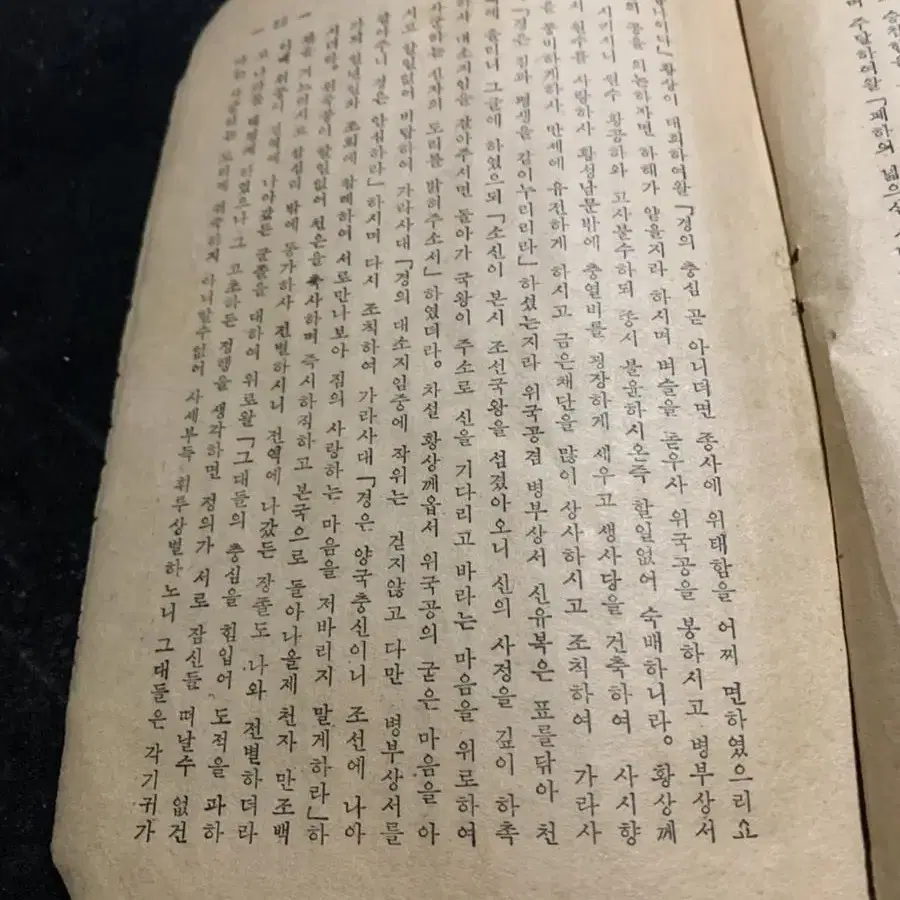 며 주달하여왈「폐하의 넓으신
나이다」황상이 대희하여왈「경의 충심 곧 아니더면 종사에 위태함을 어찌 면하였으리요
의 공을 의논하자면 하해가 얕을지라 하시며 벼슬을 돋우사 위국공을 봉하시고 병부상서
시키시니 원수 황공하와 고사불수하되 종시 불윤하시온즉 할일없어 숙배하니라。황상께
시 원수를 사랑하사 황성남문밖에 충열비를 굉장하게 세우고 생사당을 건축하여 사시향
를 풍비하게하사 만세에 유전하게 하시고 금은채단을 많이 상사하시고 조칙하여 가라사
「경은 짐과 평생을 같이누리리라」하셨는지라 위국공겸 병부상서 신유복은 표를닦아 천
께 올리니 그글에 하였으되「소신이 본시 조선국왕을 섬겼아오니 신의 사정을 깊이 하촉
하사 대소직임을 갈아주시면 돌아가 국왕이 주소로 신을 기다리고 바라는 마음을 위로하여
사군하는 신자의 도리를 밝혀주소서」하였더라。차설 황상께옵서 위국공의 굳은 마음을 아
시고 할일없이 비답하여 가라사대「경의 대소직임중에 작위는 걷지않고 다만 병부상서를
갈아주니 경은 안심하라」하시며 다시 조칙하여 가라사대「경은 양국충신이니 조선에 나아
가 일년일차 조회에 참례하여 서로만나보아 짐의 사랑하는 마음을 저바리지 말게하라」하
시더라 위국공이 할일없어 천은을 축사하며 즉시하직하고 본국으로 돌아나올제 천자 만조백
관을 거느리시고 삼십리 밖에 동가하사 전별하시니 전역에 나갔든 장졸도 나와 전별하더라
이때 전역에 나아갔든 군졸을 대하여 위로왈「그대들의 충심을 힘입어 도적을 파하
고 나라를 태평케 하였으나 그 고초하든 정행을 생각하면 정의가 서로 잠신들 떠날수 없건
도리에 귀국하지 아니할수없어 사세부득 취루상별하노니 그대들은 각기귀가